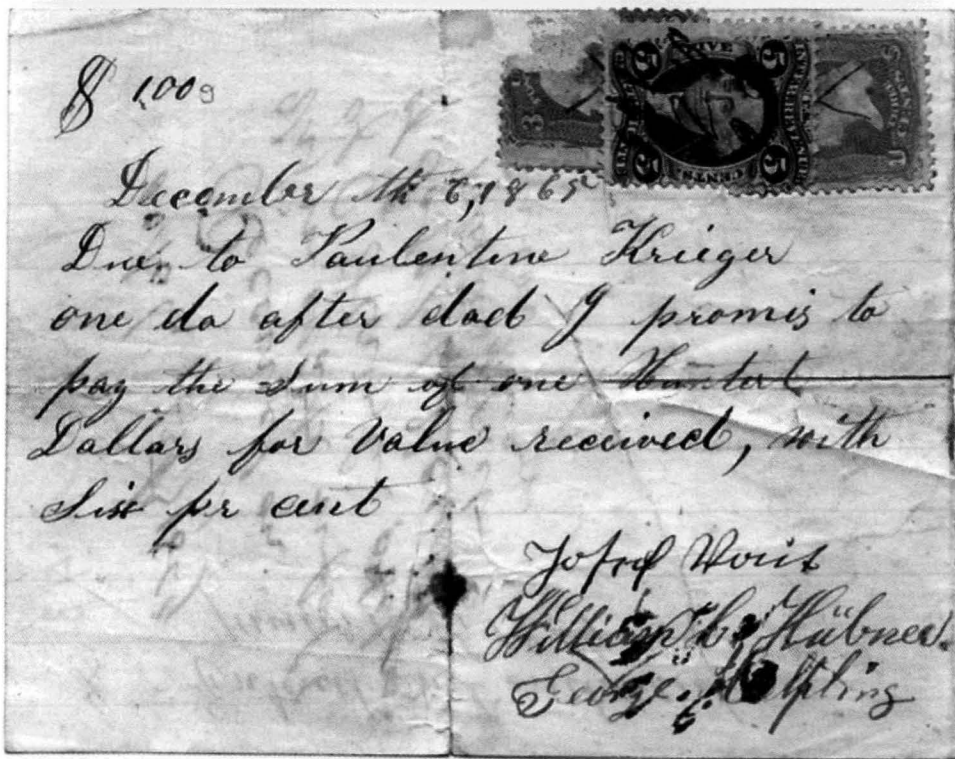 $ 100
December th 6, 1865
Due to Paulentine Krieger
one da after dad I promis to
pay the Sum of one Huntert
Dallars for Value received, with
Six pr cent
Josef Voit
William C. Hübner.
George Helfling
FIVE
5 5
INTER. REVENUE
5 5
CENTS.
3